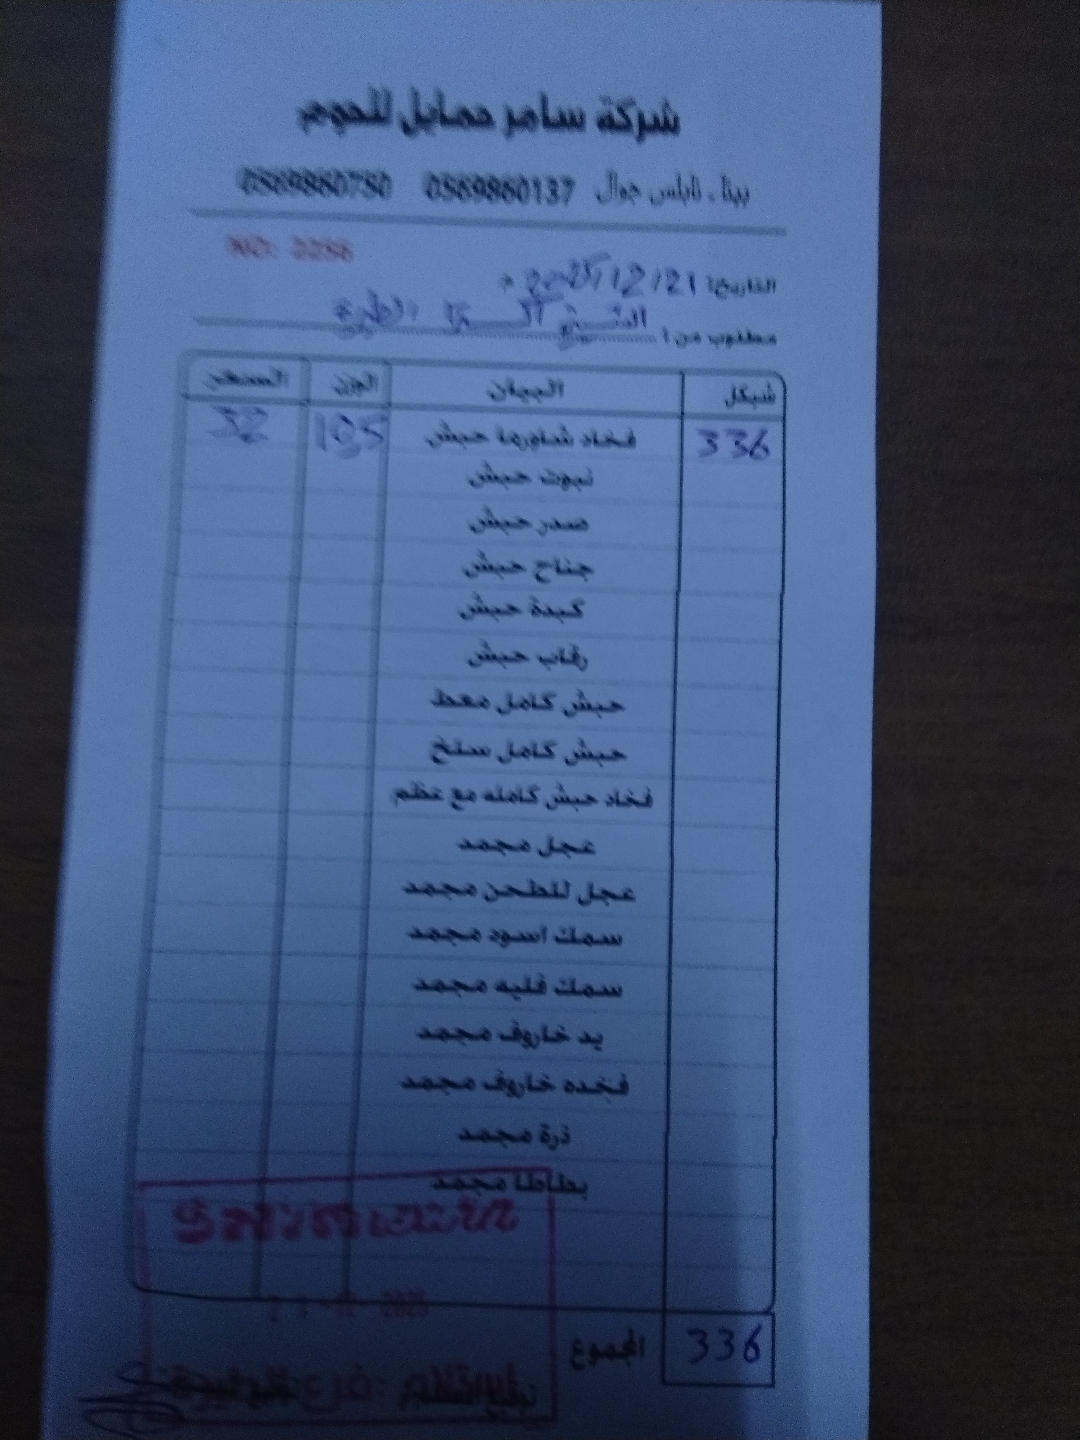 شركة سامر حمايل للحوم
بيتا - نابلس جوال 0569860137 0569860750
NO: 2256
التاريخ: 21/12/
مطلوب من:
شيكل البيان الوزن السعر
336 فخاد شاورما حبش 105 32
نبوت حبش
صدر حبش
جناح حبش
كبدة حبش
رقاب حبش
حبش كامل معط
حبش كامل سلخ
فخاد حبش كامله مع عظم
عجل مجمد
عجل للطحن مجمد
سمك اسود مجمد
سمك فليه مجمد
يد خاروف مجمد
فخده خاروف مجمد
ذرة مجمد
بطاطا مجمد
المجموع 336